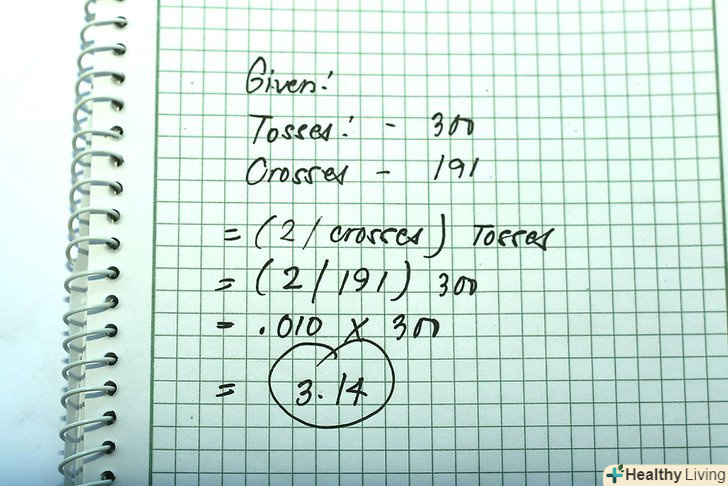 Given:
Tosses: - 300
Crosses - 191
= (2/crosses) Tosses
= (2/191) 300
= .010 x 300
= 3.14
Healthy Living